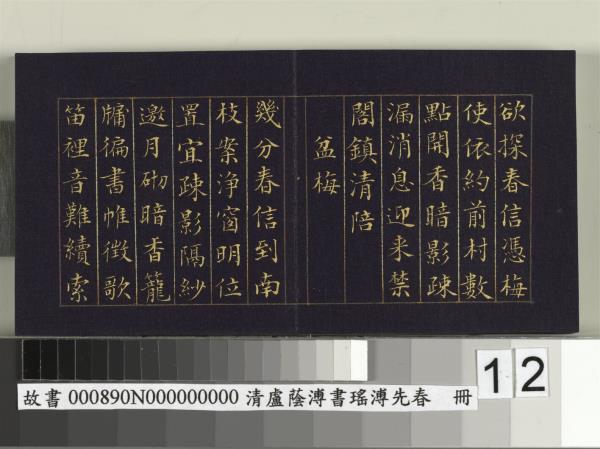 欲探春信憑梅
使依約前村數
點開香暗影疎
漏消息迎来禁
閣鎮清陪
盆梅
幾分春信到南
枝案淨窗明位
置宜疎影隔紗
邀月砌暗香籠
牖徧書帷徴歌
笛裡音難續索
12
故書 000890N000000000 清盧蔭溥書瑤溥先春 冊